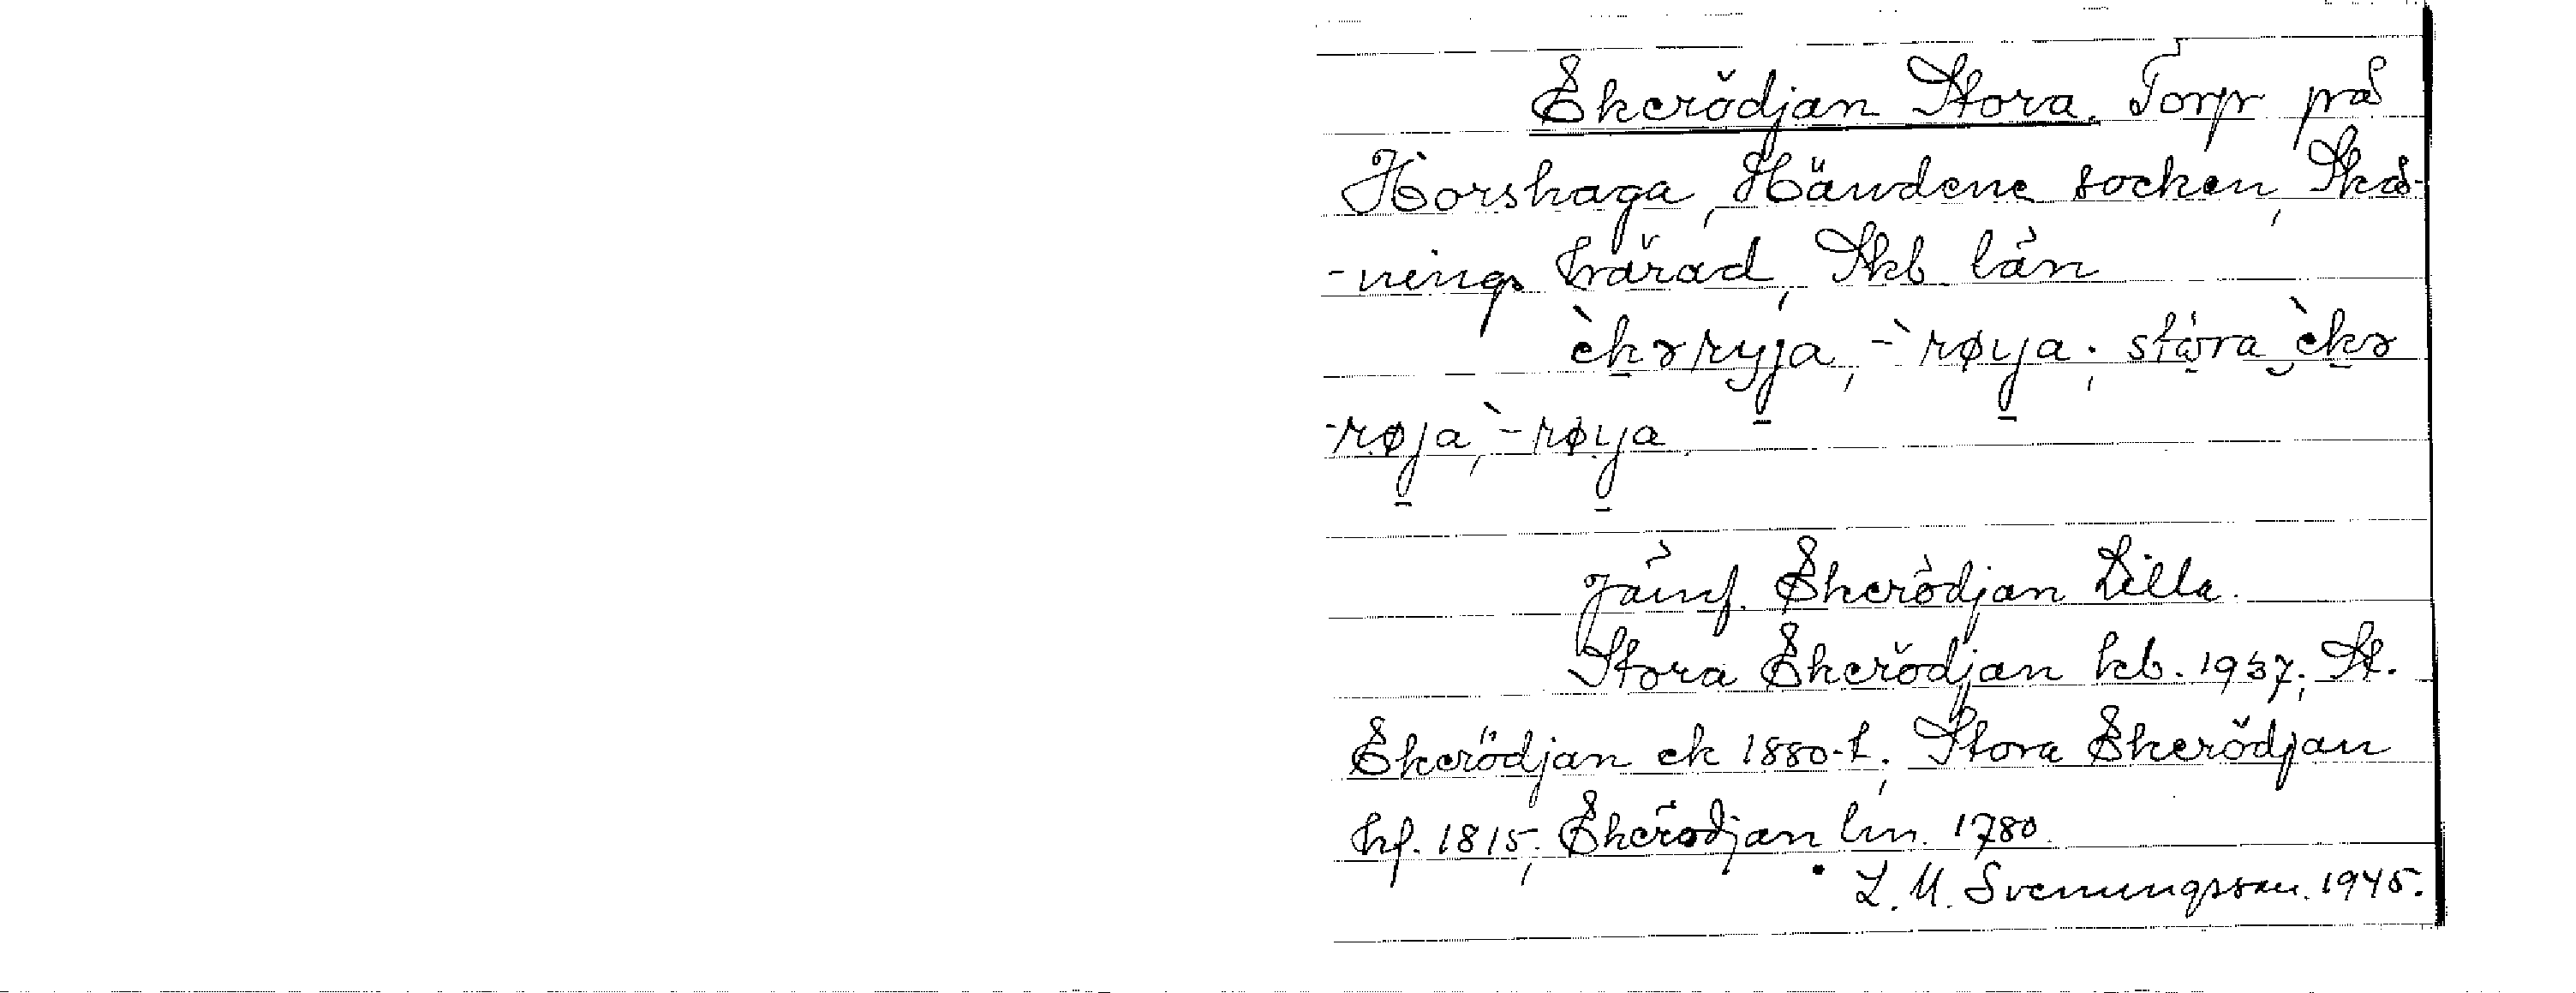 Ekerödjan Stora. Torp på
Horshaga, Händene socken, Skå-
-nings härad, Skb. län
èkərɥja, -̀røɥja; stòra èkə
-røja, -̀røɥja.
Jämf. Ekerödjan Lilla.
Stora Ekerödjan kb. 1937; St.
Ekerödjan ek 1880-t.; Stora Ekerödjan
hf. 1815; Ekerödjan lm. 1780.
L. M. Svenungsson. 1945.